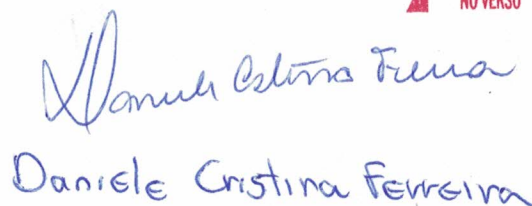 NO VERSO
Daniele Cristina Ferreira
Daniele Cristina Ferreira